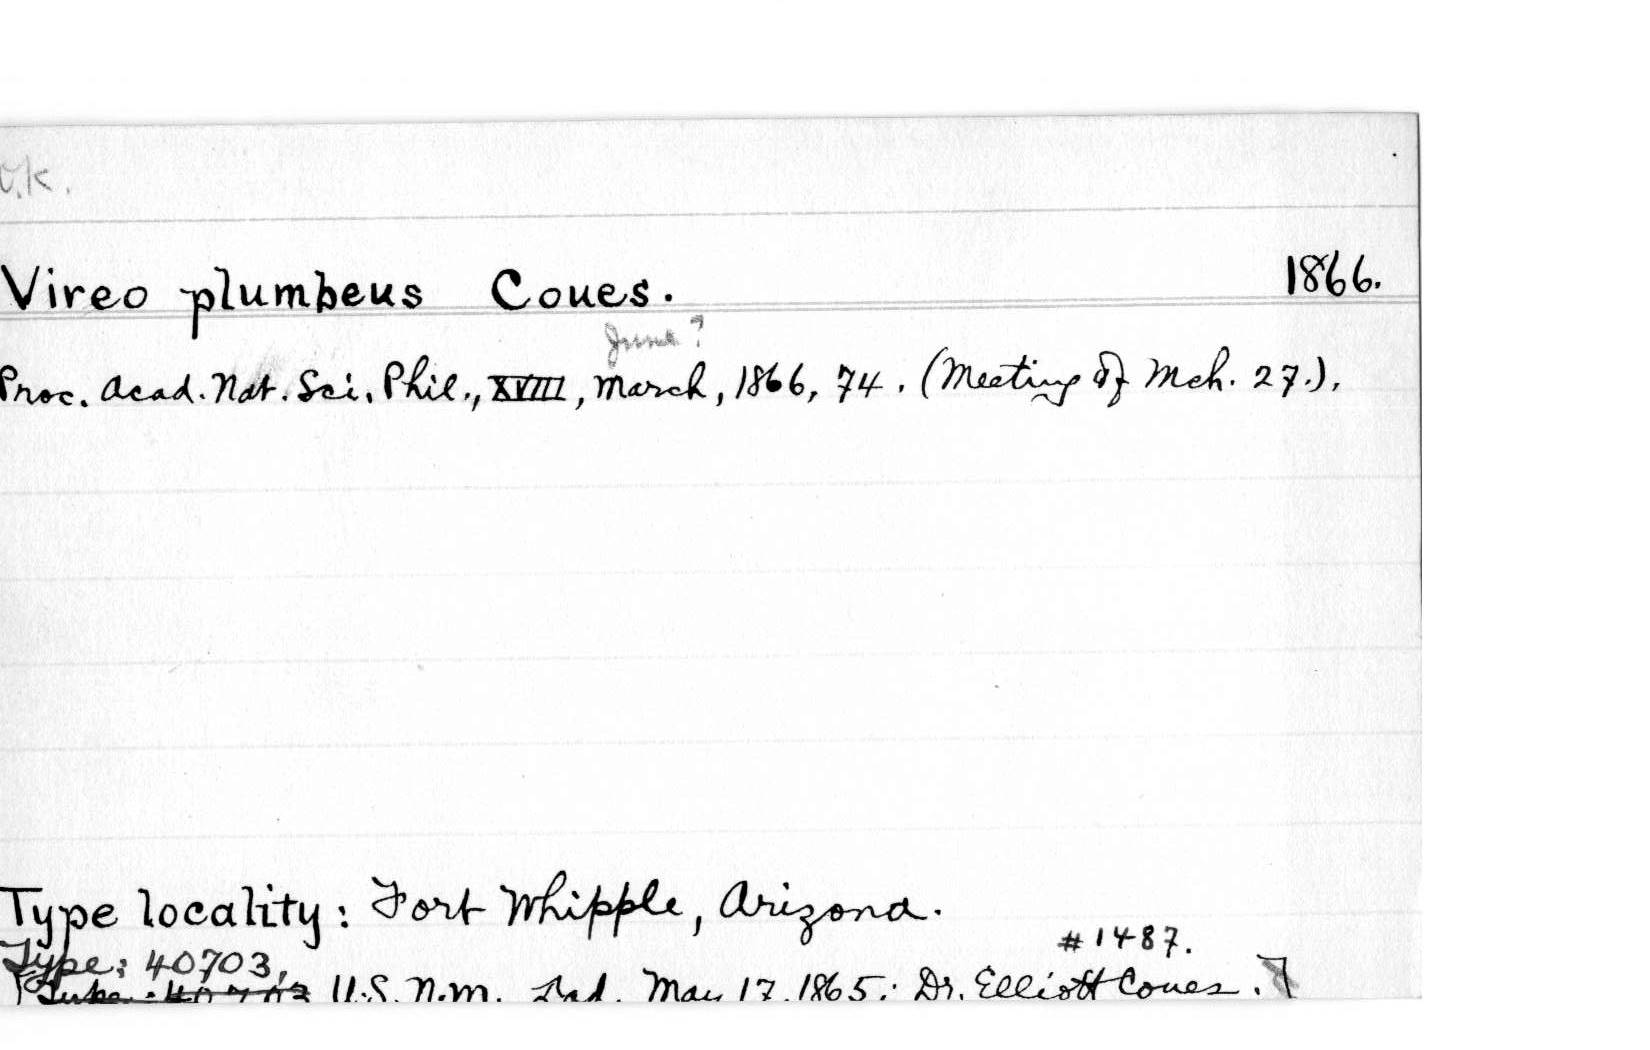 O.K.
Vireo plumbeus Coues. 1866.
June?
Proc. Acad. Nat. Sci. Phil., XVIII, March, 1866, 74. (Meeting of Mch. 27.).
Type locality: Fort Whipple, Arizona.
#1487.
Type: 40703,
[Type: 40703 U.S.N.M. Lad. May 17, 1865; Dr. Elliott Coues.]